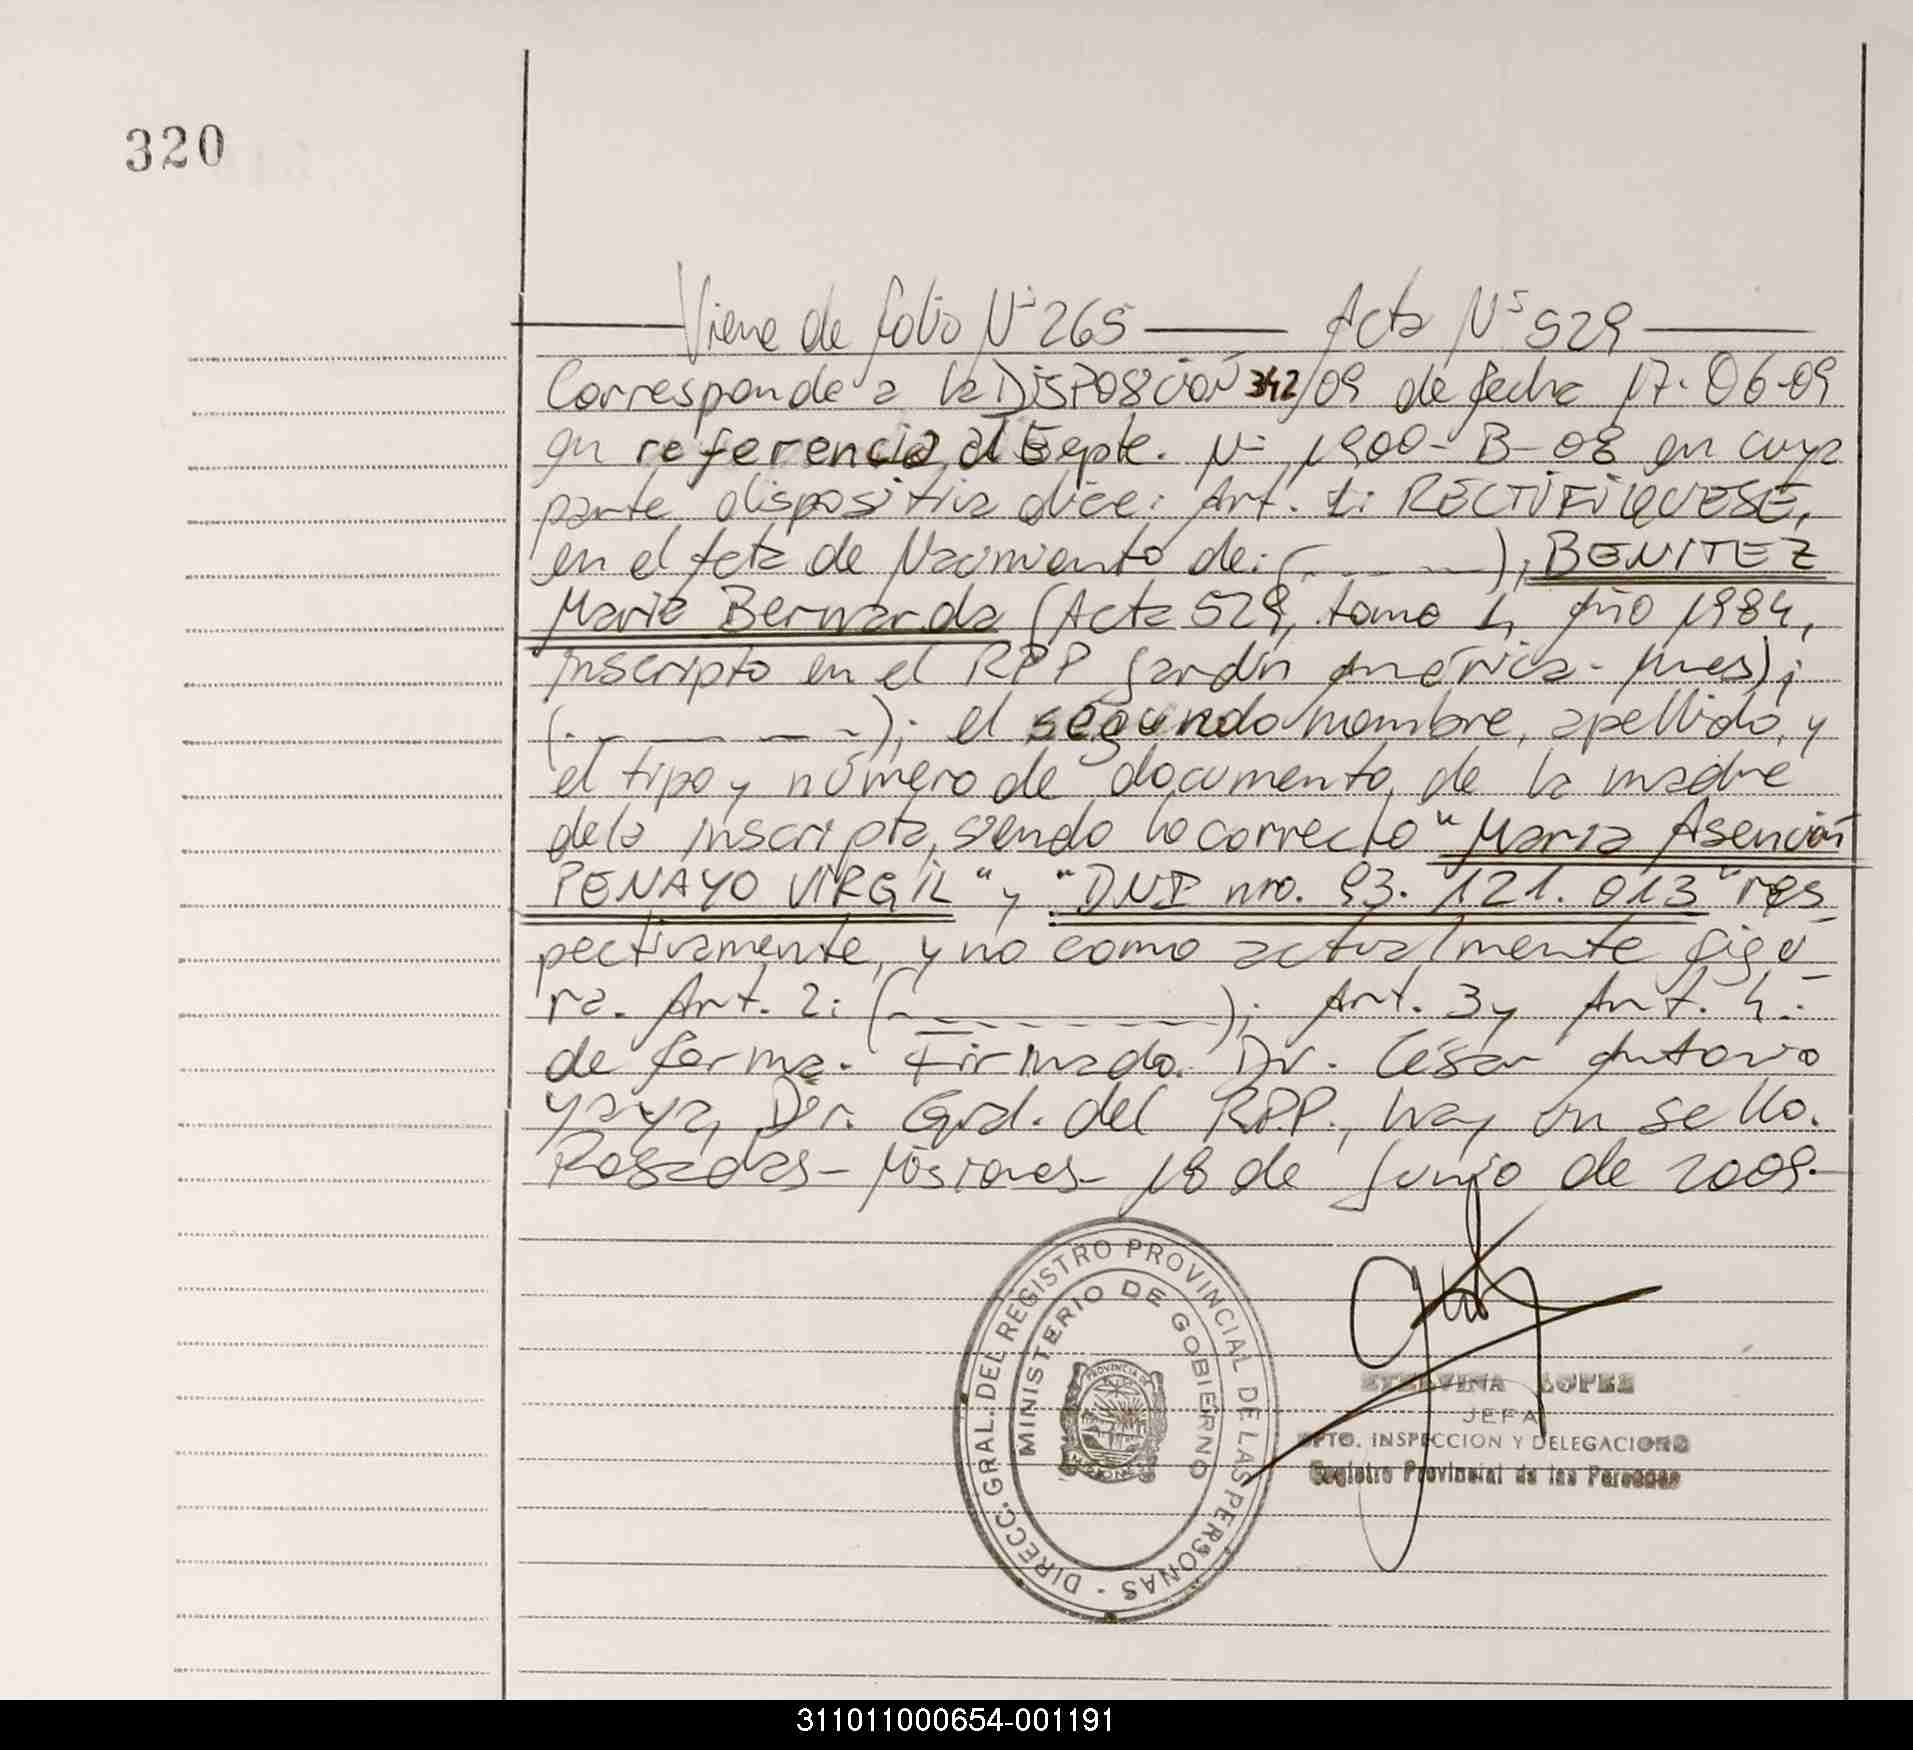 320
Viene de folio Nº 265 — Acta Nº 529 —
Corresponde a la DISPOSICIÓN 342/09 de fecha 17-06-09
en referencia al Expte. Nº 1900-B-08 en cuya
parte dispositiva dice: Art. 1: RECTIFIQUESE,
en el Acta de Nacimiento de: (- - - -), BENITEZ
Maria Bernarda (Acta 529, tomo 1, Año 1984,
inscripto en el RPP Jardín América - Mnes);
(- - - - -); el segundo nombre, apellido, y
el tipo y número de documento, de la madre
de la inscripta, siendo lo correcto "Maria Asención
PENAYO VIRGIL" y "DNI nro. 93.121.013" res-
pectivamente, y no como actualmente figu-
ra. Art. 2: (- - - - -); Art. 3 y Art. 4:
de forma. Firmado. Dr. César Antonio
Yaya, Dir. Gral. del RPP., hay un sello.
Posadas - Misiones - 18 de Junio de 2009.-
DIRECC. GRAL. DEL REGISTRO PROVINCIAL DE LAS PERSONAS -
MINISTERIO DE GOBIERNO
PROVINCIA DE
MISIONES
ETELVINA LOPEZ
JEFA
DPTO. INSPECCION Y DELEGACIONES
Registro Provincial de las Personas
311011000654-001191